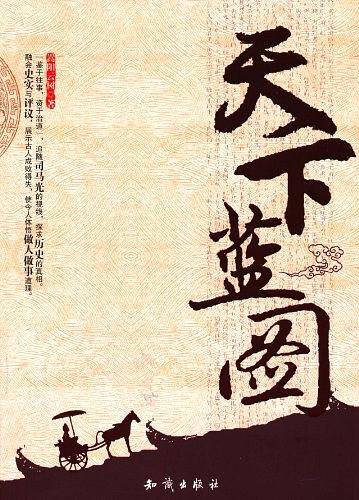 天下蓝图
嵩阳云树 著
“鉴于往事，资于治道”，追随司马光的视线，探求历史的真相，
融会史实与评议，展示古人成败得失，使今人体悟做人做事道理。
知识出版社